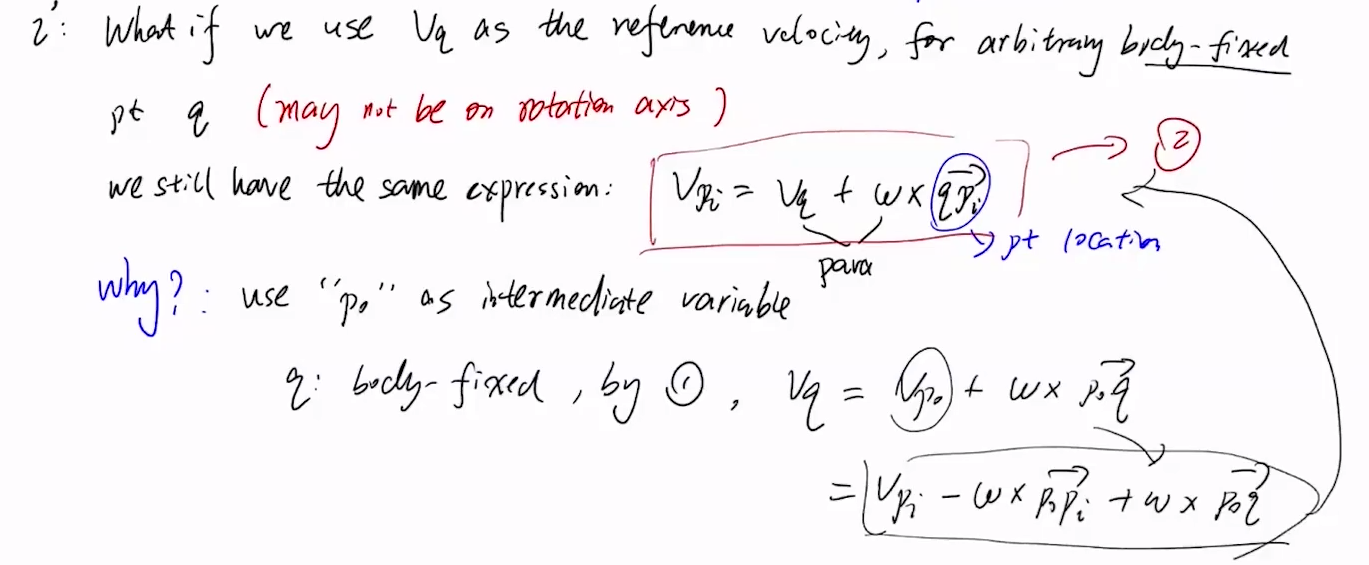 2°: What if we use Vq as the reference velocity, for arbitrary body-fixed
pt q (may not be on rotation axis)
we still have the same expression: V_{Pi} = V_q + ω × \overrightarrow{qp_i} → ②
para → pt location
why?: use "p₀" as intermediate variable
q: body-fixed, by ①, V_q = V_{p₀} + ω × \overrightarrow{p₀q}
= V_{Pi} − ω × \overrightarrow{p₀p_i} + ω × \overrightarrow{p₀q}